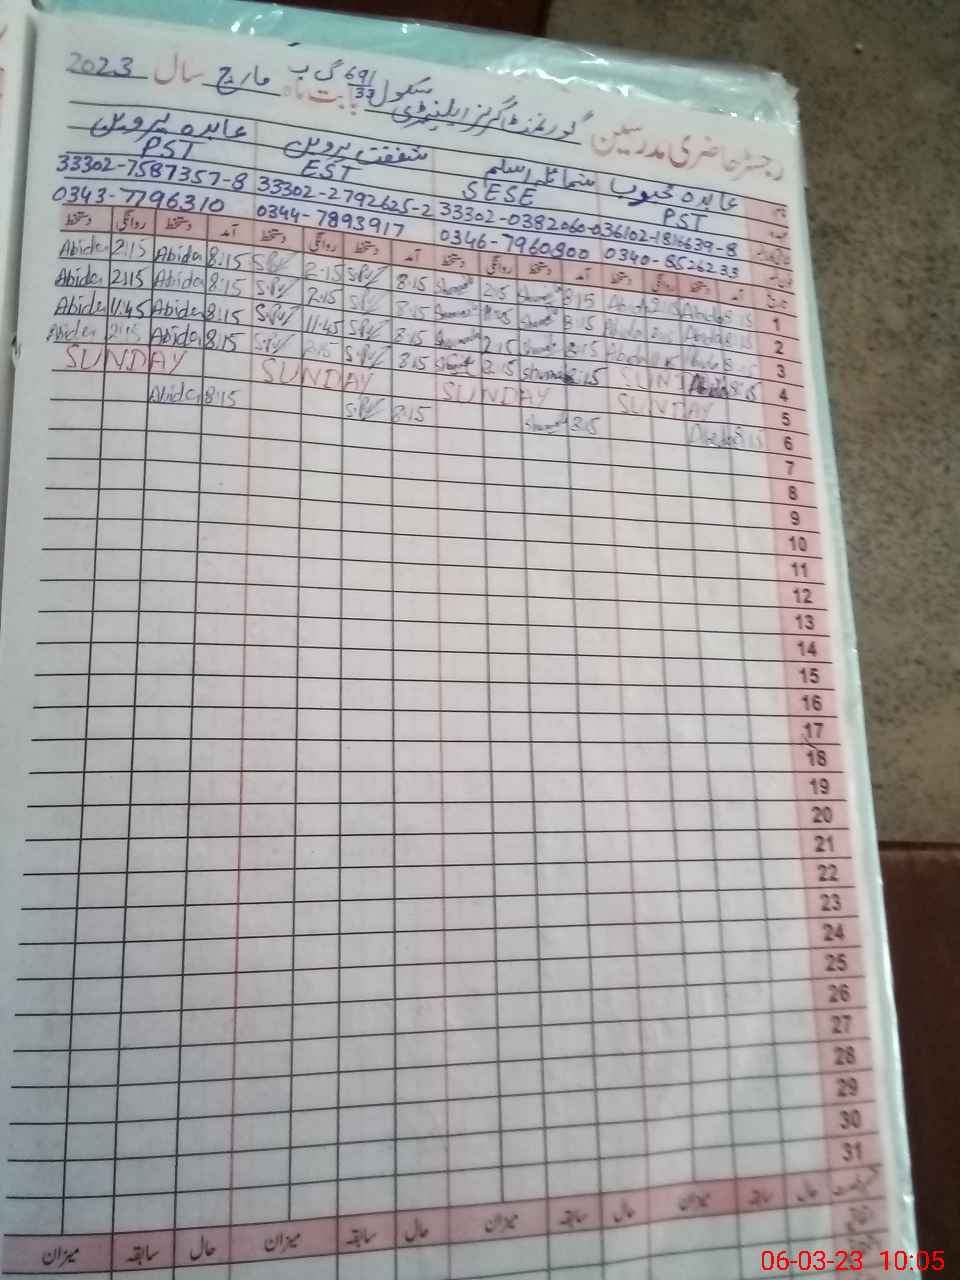 رجسٹر حاضری مدرسین گورنمنٹ گرلز ایلیمنٹری سکول 691/33 گ ب بابت ماہ مارچ سال 2023
عابدہ محبوب شمائلہ اسلم شفقت پروین عابدہ پروین
PST SESE EST PST
36102-1816639-8 33302-0382060-0 33302-2792625-2 33302-7587357-8
0340-8526233 0346-7960900 0344-7893917 0343-7796310
آمد دستخط روانگی دستخط آمد دستخط روانگی دستخط آمد دستخط روانگی دستخط آمد دستخط روانگی دستخط
1 8:15 2:15 8:15 2:15 8:15 Abida 2:15 Abida
2 8:15 8:15 2:15 8:15 Abida 2:15 Abida
3 8:15 2:15 8:15 11:45 8:15 Abida 11:45 Abida
4 8:15 2:15 8:15 2:15 8:15 Abida 2:15 Abida
5 SUNDAY SUNDAY SUNDAY SUNDAY
6 8:15 8:15 8:15 8:15 Abida
7
8
9
10
11
12
13
14
15
16
17
18
19
20
21
22
23
24
25
26
27
28
29
30
31
حال سابقہ میزان حال سابقہ میزان حال سابقہ میزان حال سابقہ میزان
06-03-23 10:05